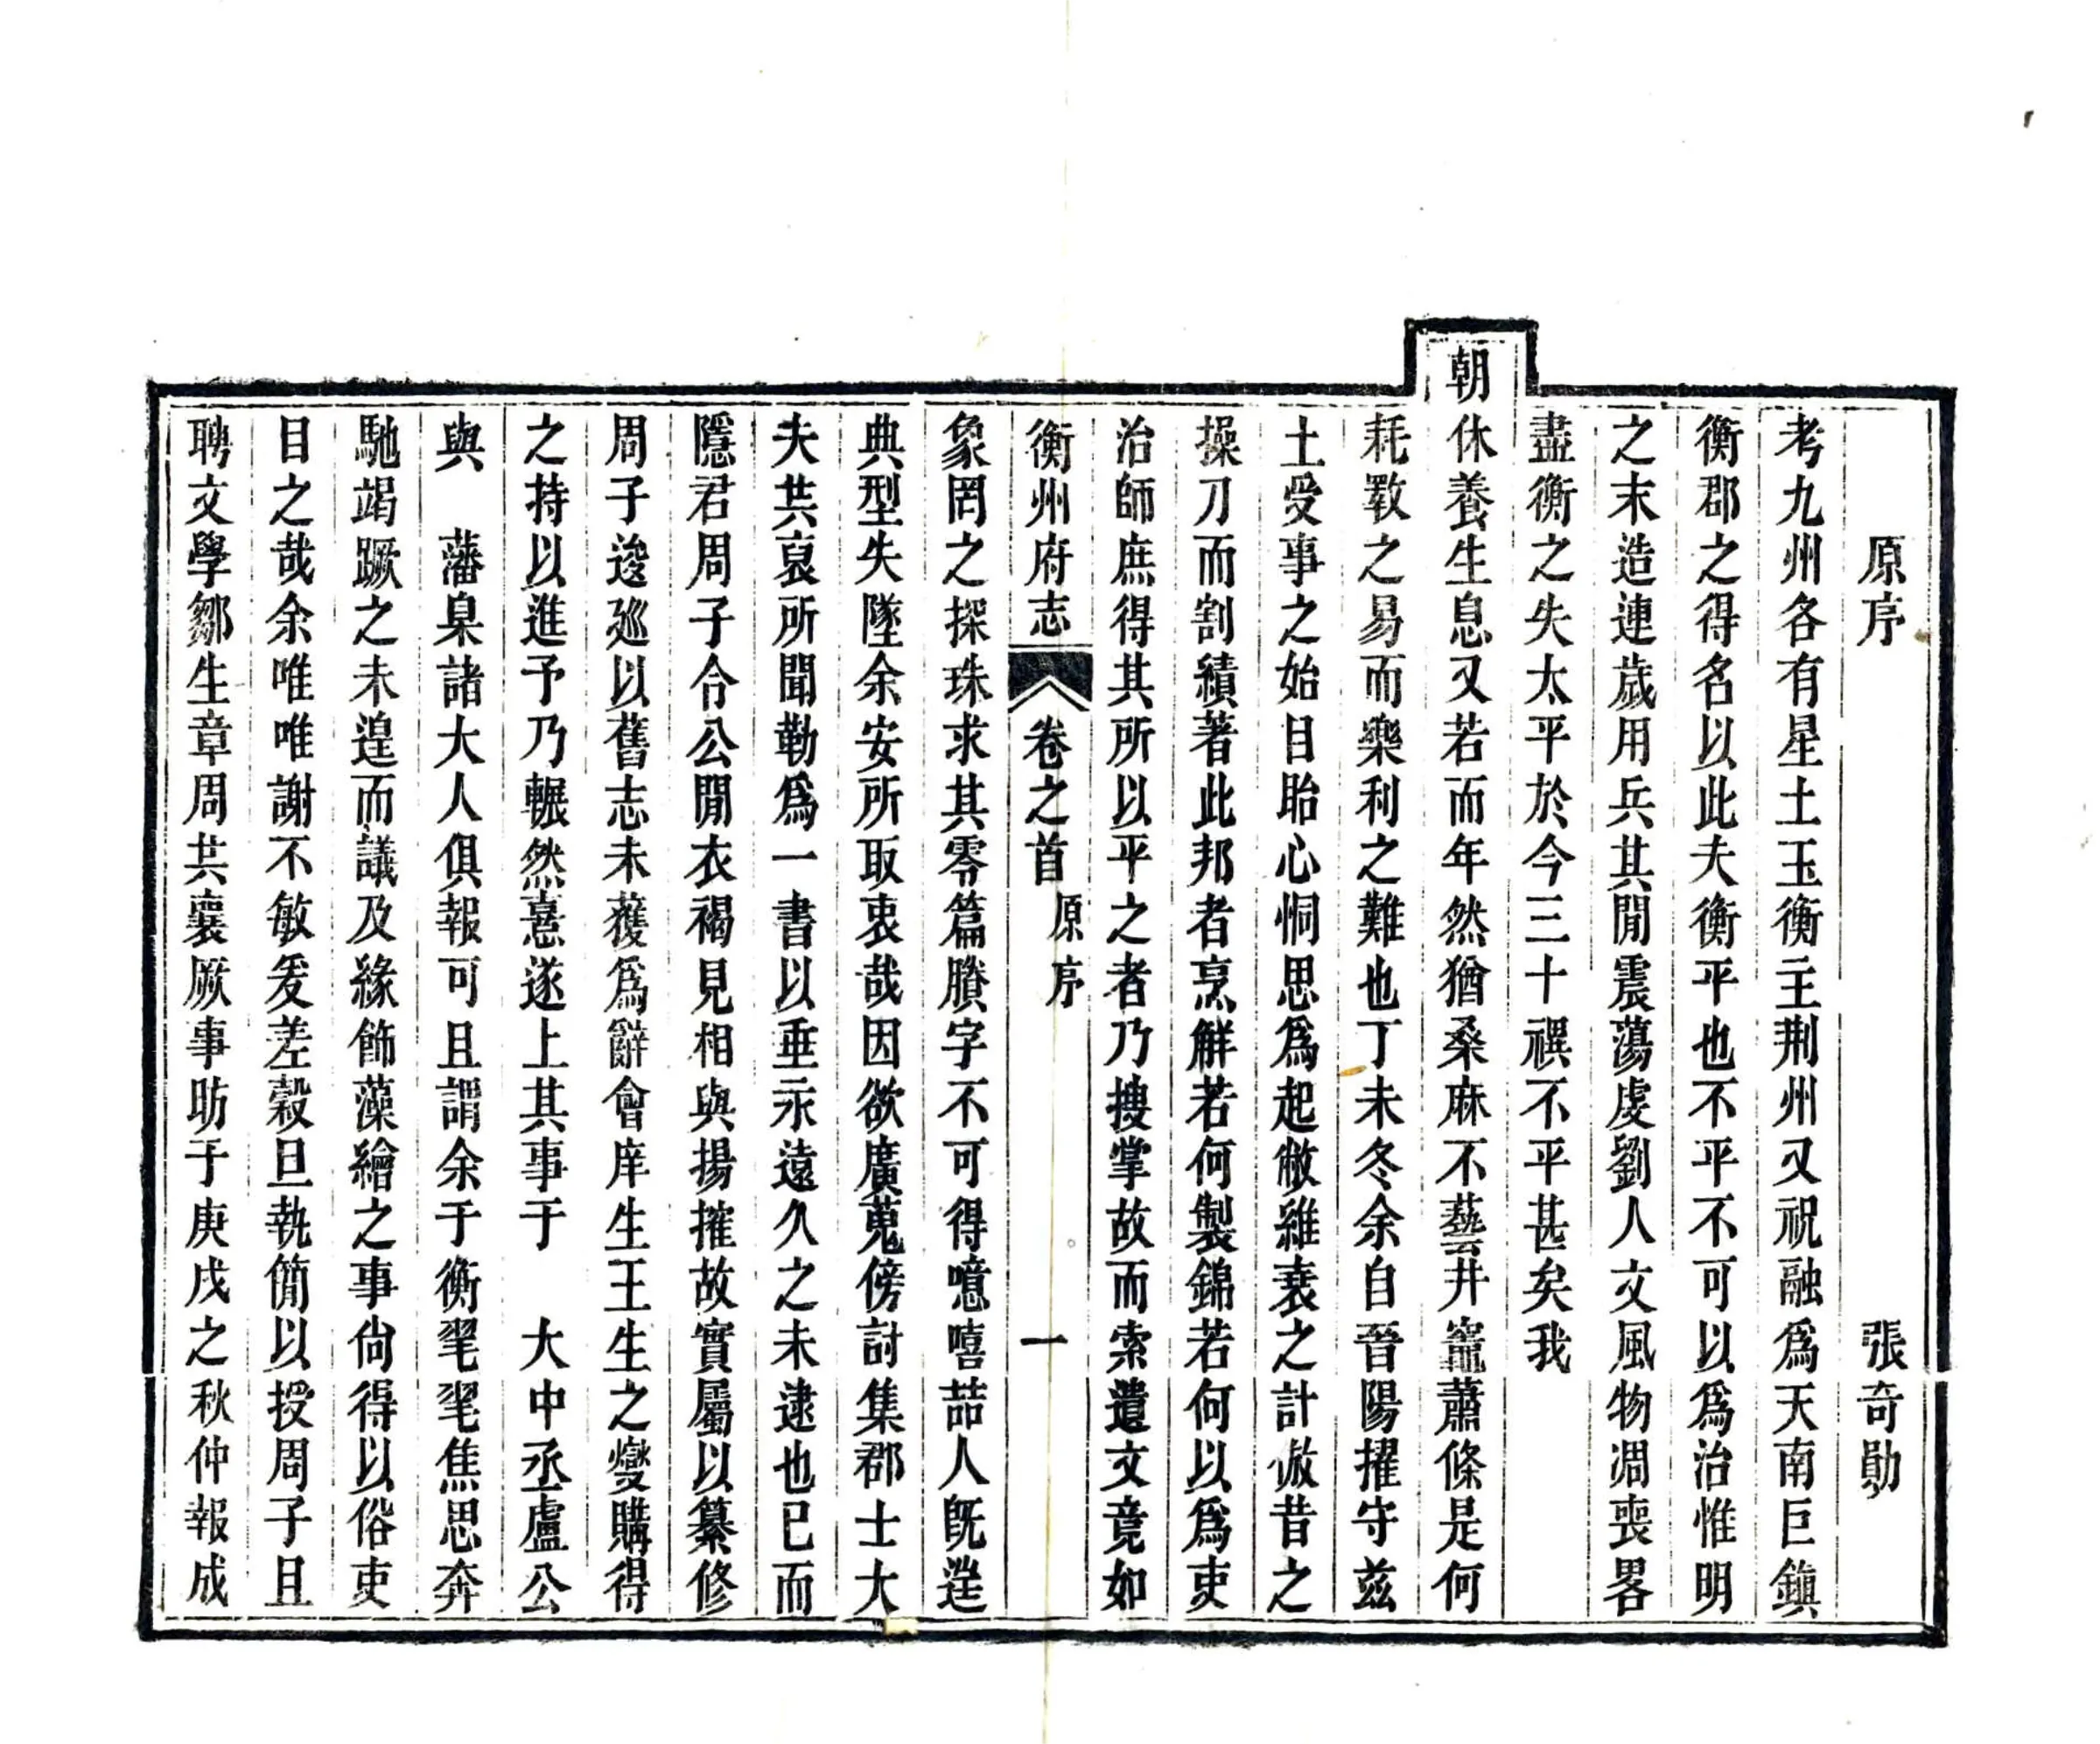 原序　張奇勛
考九州各有星土玉衡主荆州又祝融爲天南巨鎮
衡郡之得名以此夫衡平也不平不可以爲治惟明
之末造連歲用兵其閒震蕩虔劉人文風物凋喪畧
盡衡之失太平於今三十禩不平甚矣我
朝休養生息又若而年然猶桑麻不藝井竈蕭條是何
耗斁之易而樂利之難也丁未冬余自晉陽擢守兹
土受事之始目眙心恫思爲起敝維衰之計倣昔之
操刀而割績著此邦者烹鮮若何製錦若何以爲吏
治師庶得其所以平之者乃捜掌故而索遺文竟如
衡州府志　卷之首　原序　一
象罔之探珠求其零篇賸字不可得噫嘻喆人旣逝
典型失墜余安所取衷哉因欲廣蒐傍討集郡士大
夫共裒所聞勒爲一書以垂永遠久之未逮也已而
隱君周子令公閒衣褐見相與揚搉故實屬以纂修
周子逡廵以舊志未獲爲辭會庠生王生之燮購得
之持以進予乃囅然憙遂上其事于　大中丞盧公
與　藩臬諸大人俱報可且謂余于衡毣毣焦思奔
馳竭蹶之未遑而議及緣飾藻繪之事尙得以俗吏
目之哉余唯唯謝不敏爰差榖旦執簡以授周子且
聘文學鄒生章周共襄厥事昉于庚戌之秋仲報成